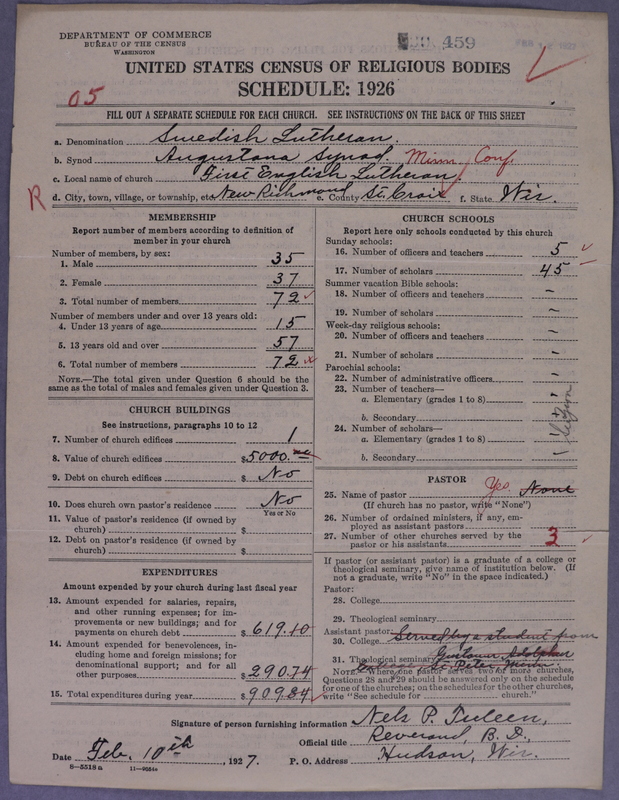 DEPARTMENT OF COMMERCE
BUREAU OF THE CENSUS
WASHINGTON
459
UNITED STATES CENSUS OF RELIGIOUS BODIES
SCHEDULE: 1926
05
FILL OUT A SEPARATE SCHEDULE FOR EACH CHURCH. SEE INSTRUCTIONS ON THE BACK OF THIS SHEET
a. Denomination Swedish Lutheran.
b. Synod Augustana Synod. Minn. Conf.
c. Local name of church First English Lutheran.
R d. City, town, village, or township, etc. New Richmond e. County St. Croix f. State Wis.
MEMBERSHIP
Report number of members according to definition of member in your church
Number of members, by sex:
1. Male 35
2. Female 37
3. Total number of members 72
Number of members under and over 13 years old:
4. Under 13 years of age 15
5. 13 years old and over 57
6. Total number of members 72
NOTE.—The total given under Question 6 should be the same as the total of males and females given under Question 3.
CHURCH BUILDINGS
See instructions, paragraphs 10 to 12
7. Number of church edifices 1
8. Value of church edifices $5000.
9. Debt on church edifices $ No
10. Does church own pastor's residence No
Yes or No
11. Value of pastor's residence (if owned by church) $
12. Debt on pastor's residence (if owned by church) $
EXPENDITURES
Amount expended by your church during last fiscal year
13. Amount expended for salaries, repairs, and other running expenses; for improvements or new buildings; and for payments on church debt $619.10
14. Amount expended for benevolences, including home and foreign missions; for denominational support; and for all other purposes $290.74
15. Total expenditures during year $909.84
CHURCH SCHOOLS
Report here only schools conducted by this church
Sunday schools:
16. Number of officers and teachers 5
17. Number of scholars 45
Summer vacation Bible schools:
18. Number of officers and teachers –
19. Number of scholars –
Week-day religious schools:
20. Number of officers and teachers –
21. Number of scholars –
Parochial schools:
22. Number of administrative officers
23. Number of teachers—
a. Elementary (grades 1 to 8)
b. Secondary
24. Number of scholars—
a. Elementary (grades 1 to 8)
b. Secondary
PASTOR
25. Name of pastor Yes None
(If church has no pastor, write "None")
26. Number of ordained ministers, if any, employed as assistant pastors
27. Number of other churches served by the pastor or his assistants 3
If pastor (or assistant pastor) is a graduate of a college or theological seminary, give name of institution below. (If not a graduate, write "No" in the space indicated.)
Pastor:
28. College
29. Theological seminary
Assistant pastor:
30. College Served by a student from
31. Theological seminary Gustavus Adolphus
St. Peter Minn.
NOTE.—Where one pastor serves two or more churches, Questions 28 and 29 should be answered only on the schedule for one of the churches; on the schedules for the other churches, write "See schedule for church."
Signature of person furnishing information Nels P. Tuleen,
Official title Reverend, B. D.,
Date Feb. 10th, 1927. P. O. Address Hudson, Wis.
8—5518a 11—9554a